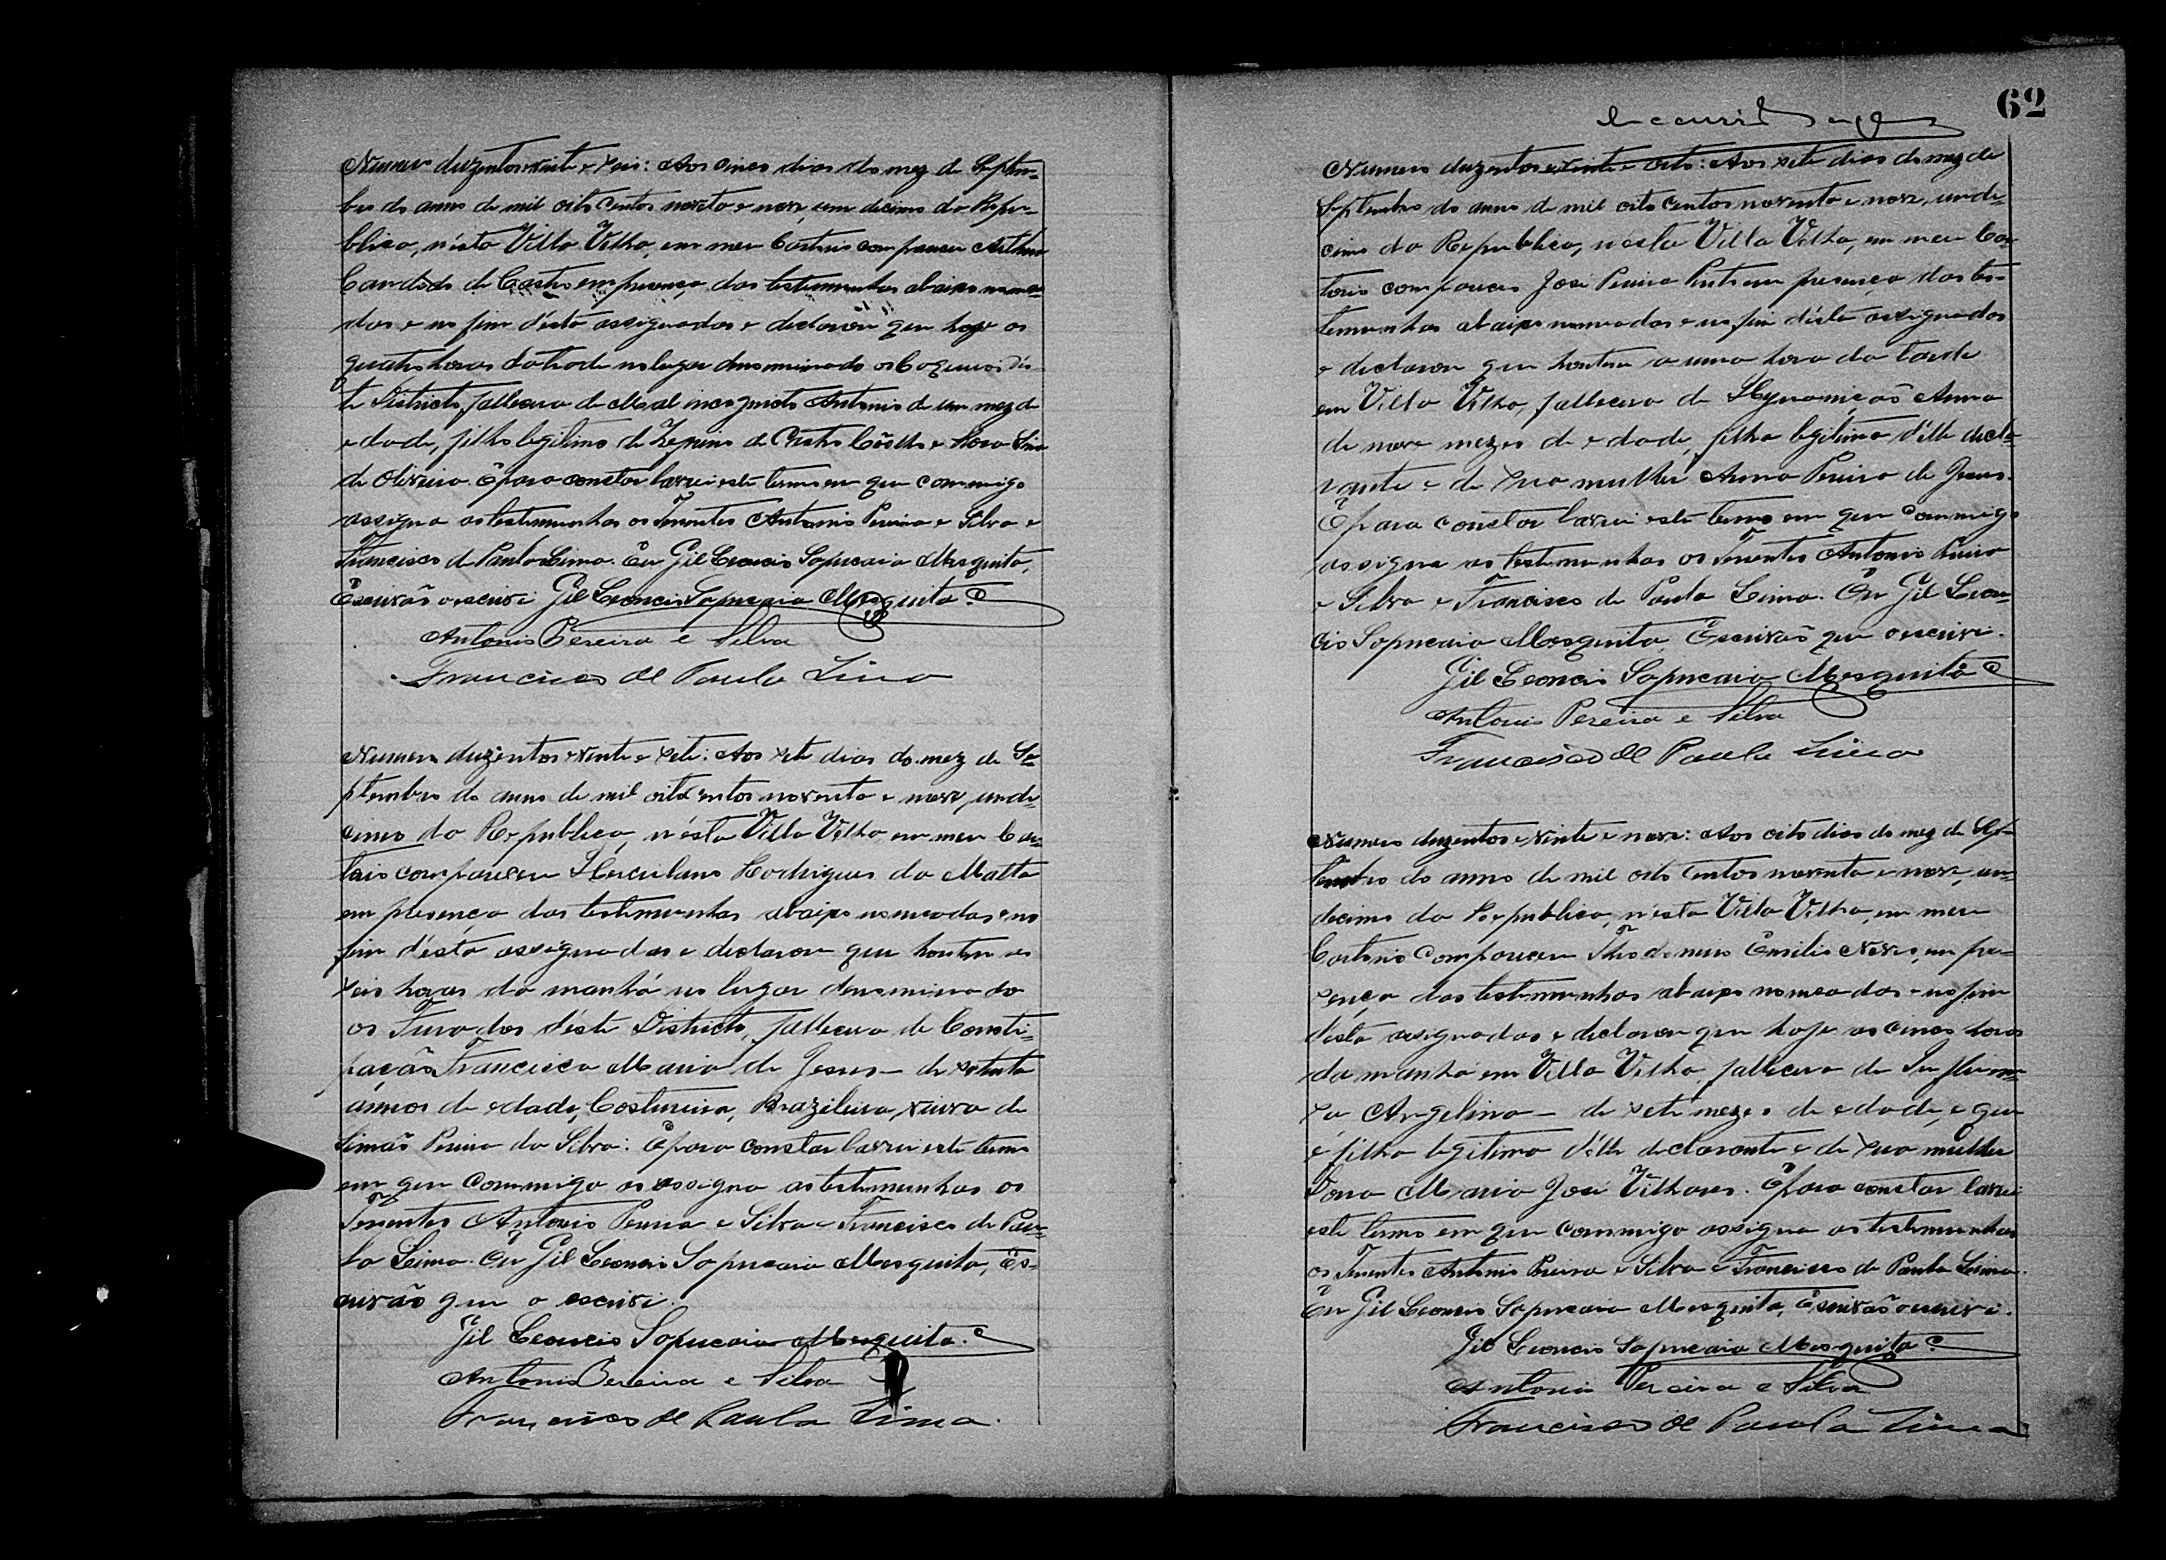 Numero duzentos e vinte e seis: Aos cinco dias do mez de Septem-
bro do anno de mil oito centos noventa e nove, um decimo da Repu-
blica, n'ésta Villa Velha, em meu Cartorio compareceu Arthur
Candido de Castro em presença das testemunhas abaixo nomea-
das e no fim d'ésta assignadas e declarou que hoje as
quatro horas da tarde no lugar denominado os Coqueiros dés-
te Districto, fallecera de Mal incognito Antonio de um mez de
edade, filho legitimo de Zeferino de Castro Coêlho e Rosa Lina
de Oliveira. E para constar lavrei este termo em que commigo
assigna as testemunhas os Tenentes Antonio Pereira e Silva e
Francisco de Paula Lima. Eu Gil Leoncio Sapucaia Mesquita,
Escrivão o escrivi Gil Leoncio Sapucaia Mesquita.
Antonio Pereira e Silva
Francisco de Paula Lima
Numero duzentos e vinte e sete: Aos sete dias do mez de Se-
ptembro do anno de mil oito centos noventa e nove, unde-
cimo da Republica, n'ésta Villa Velha em meu Car-
torio compareceu Herculano Rodrigues da Matta
em presença das testemunhas abaixo nomeadas e no
fim d'ésta assignadas e declarou que hontem as
seis horas da manhã no lugar denominado
os Furados d'éste Districto, fallecera de Consti-
pação Francisca Maria de Jesus - de setenta
annos de edade, Costureira, Brazileira, viuva de
Simão Pereira da Silva: E para constar lavrei este termo
em que commigo as assigna as testemunhas os
Tenentes Antonio Pereira e Silva e Francisco de Pau-
la Lima. Eu Gil Leoncio Sapucaia Mesquita, Es-
crivão que o escrivi.
Gil Leoncio Sapucaia Mesquita.
Antonio Pereira e Silva
Francisco de Paula Lima.
62
Numero duzentos e vinte e oito: Aos sete dias do mez de
Septembro do anno de mil oito centos noventa e nove, unde-
cimo da Republica, n'ésta Villa Velha, em meu Car-
torio compareceu José Pereira Pinto em presença das tes-
temunhas abaixo nomeadas e no fim d'ésta assignadas
e declarou que hontem a uma hora da tarde
em Villa Velha, fallecera de Anna
de nove mezes de edade, filha legitima d'élle decla-
rante e de sua mulher Anna Pereira de Jesus.
E para constar lavrei este termo em que commigo
assigna as testemunhas os Tenentes Antonio Pereira
e Silva e Francisco de Paula Lima. Eu Gil Leon-
cio Sapucaia Mesquita, Escrivão que o escrivi.
Gil Leoncio Sapucaia Mesquita
Antonio Pereira e Silva
Francisco de Paula Lima
Numero duzentos e vinte e nove: Aos oito dias do mez de Sep-
tembro do anno de mil oito centos noventa e nove, un-
decimo da Republica, n'ésta Villa Velha, em meu
Cartorio compareceu Emilio Neves, em pre-
sença das testemunhas abaixo nomeadas e no fim
d'ésta assignadas e declarou que hoje as cinco horas
da manhã em Villa Velha, fallecera de
Angelina - de sete mezes de edade, e que
é filha legitima d'élle declarante e de sua mulher
Dona Maria José Vilhares. E para constar lavrei
este termo em que commigo assigna as testemunhas
os Tenentes Antonio Pereira e Silva e Francisco de Paula Lima.
Eu Gil Leoncio Sapucaia Mesquita, Escrivão o escrivi.
Gil Leoncio Sapucaia Mesquita
Antonio Pereira e Silva
Francisco de Paula Lima